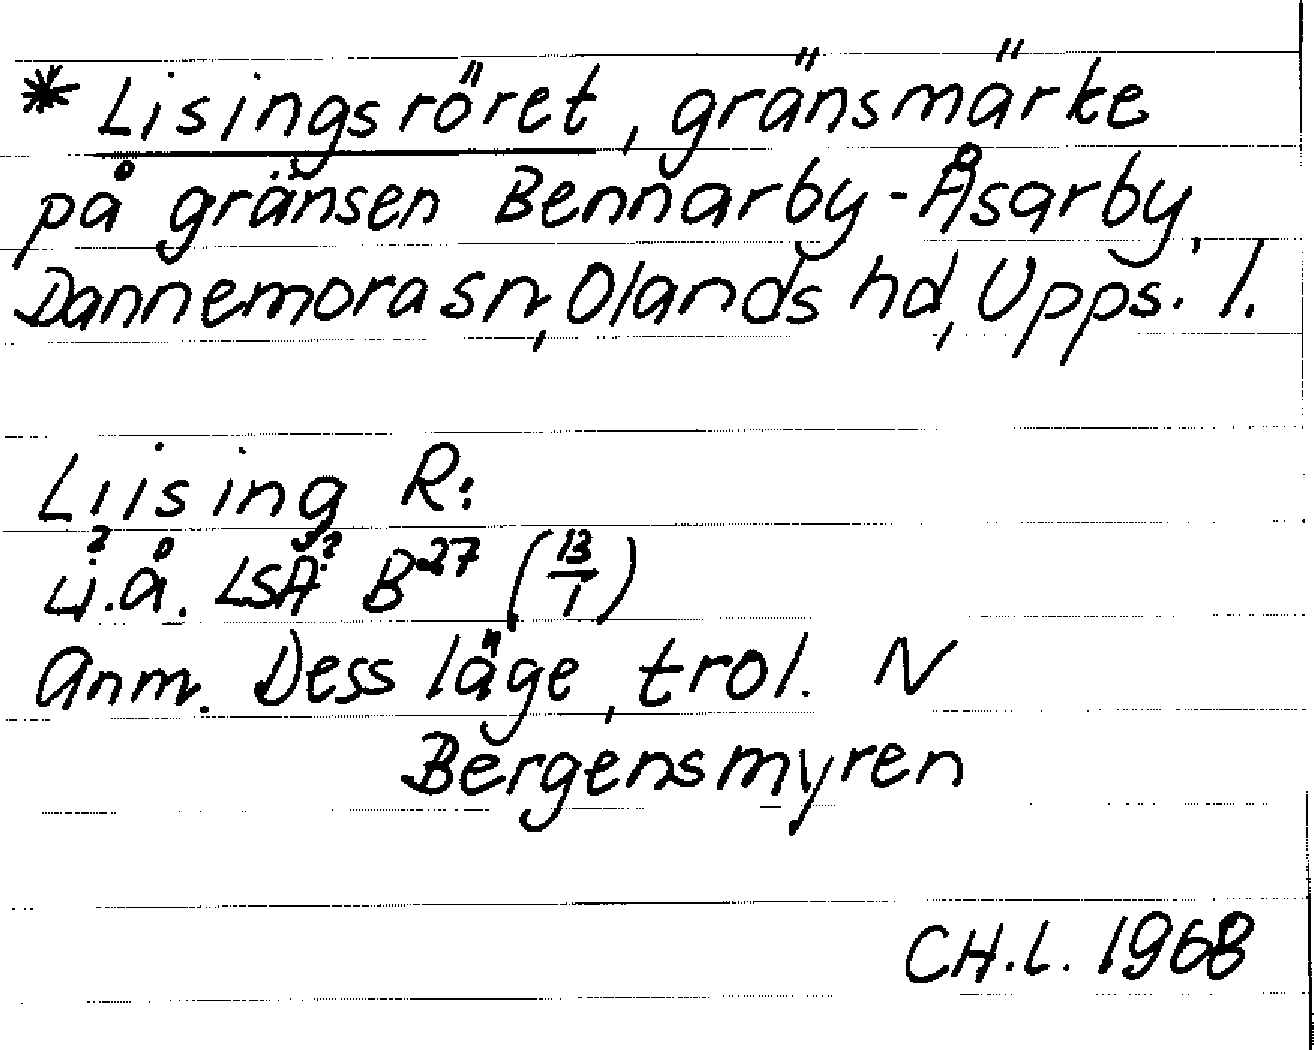 * Lisingsröret, gränsmärke
på gränsen Bennarby-Åsarby,
Dannemora sn, Olands hd, Upps. l.
Liising R:
u.å. LSA B 27 (13/1)
Anm. Dess läge, trol. N
Bergensmyren
CH.L. 1968